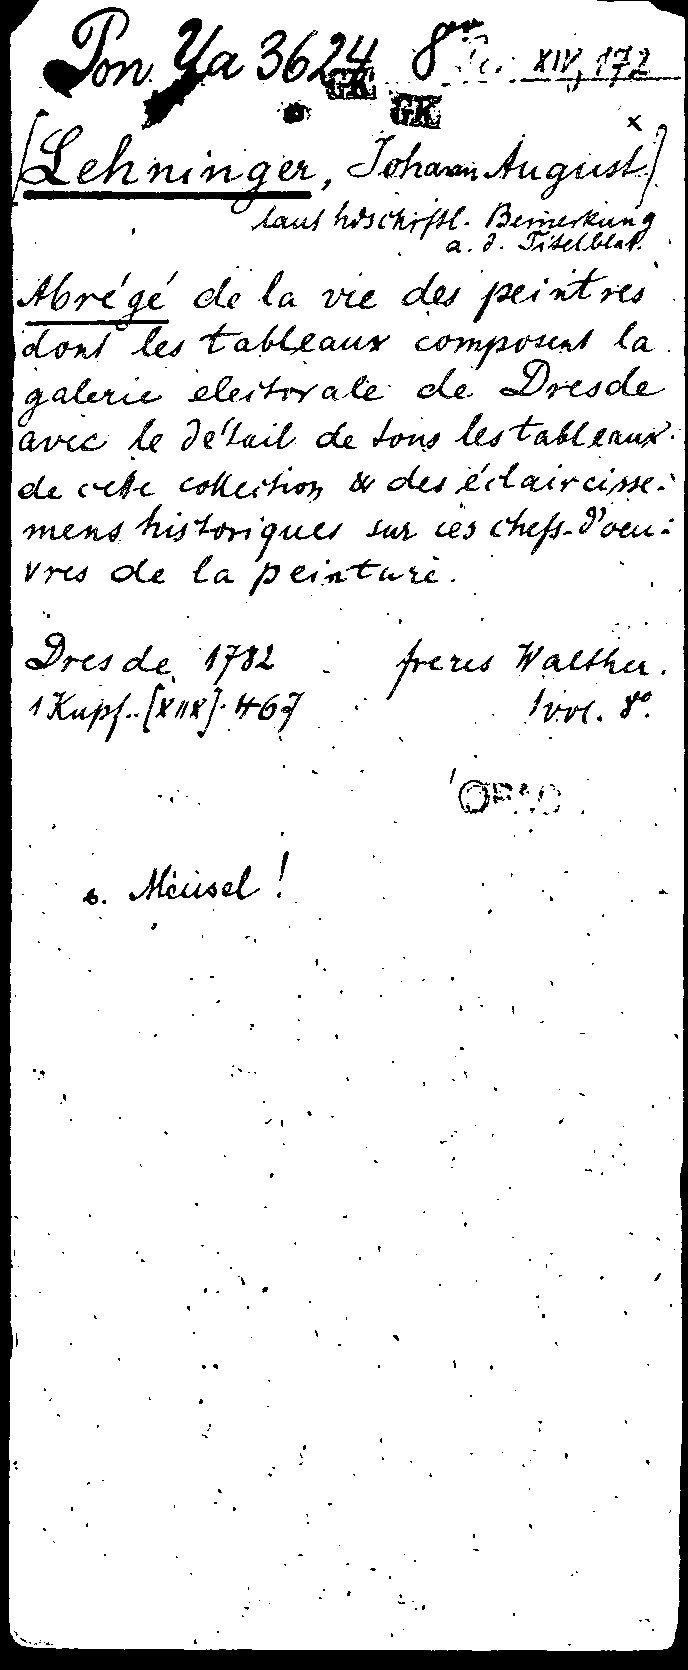 Pon Ya 3624 8° XIV, 172
GK GK
x
[Lehninger, Johann August]
laut hdschriftl. Bemerkung
a. d. Titelblat.
Abrégé de la vie des peintres
dont les tableaux composent la
galerie electorale de Dresde
avec le détail de tous les tableaux
de cette collection & des éclaircisse-
mens historiques sur ces chefs-d'oeu-
vres de la peinture.
Dresde 1782 freres Walther.
1 Kupf. [XIIX] 467 1 vol. 8°.
OPAC
s. Meusel!